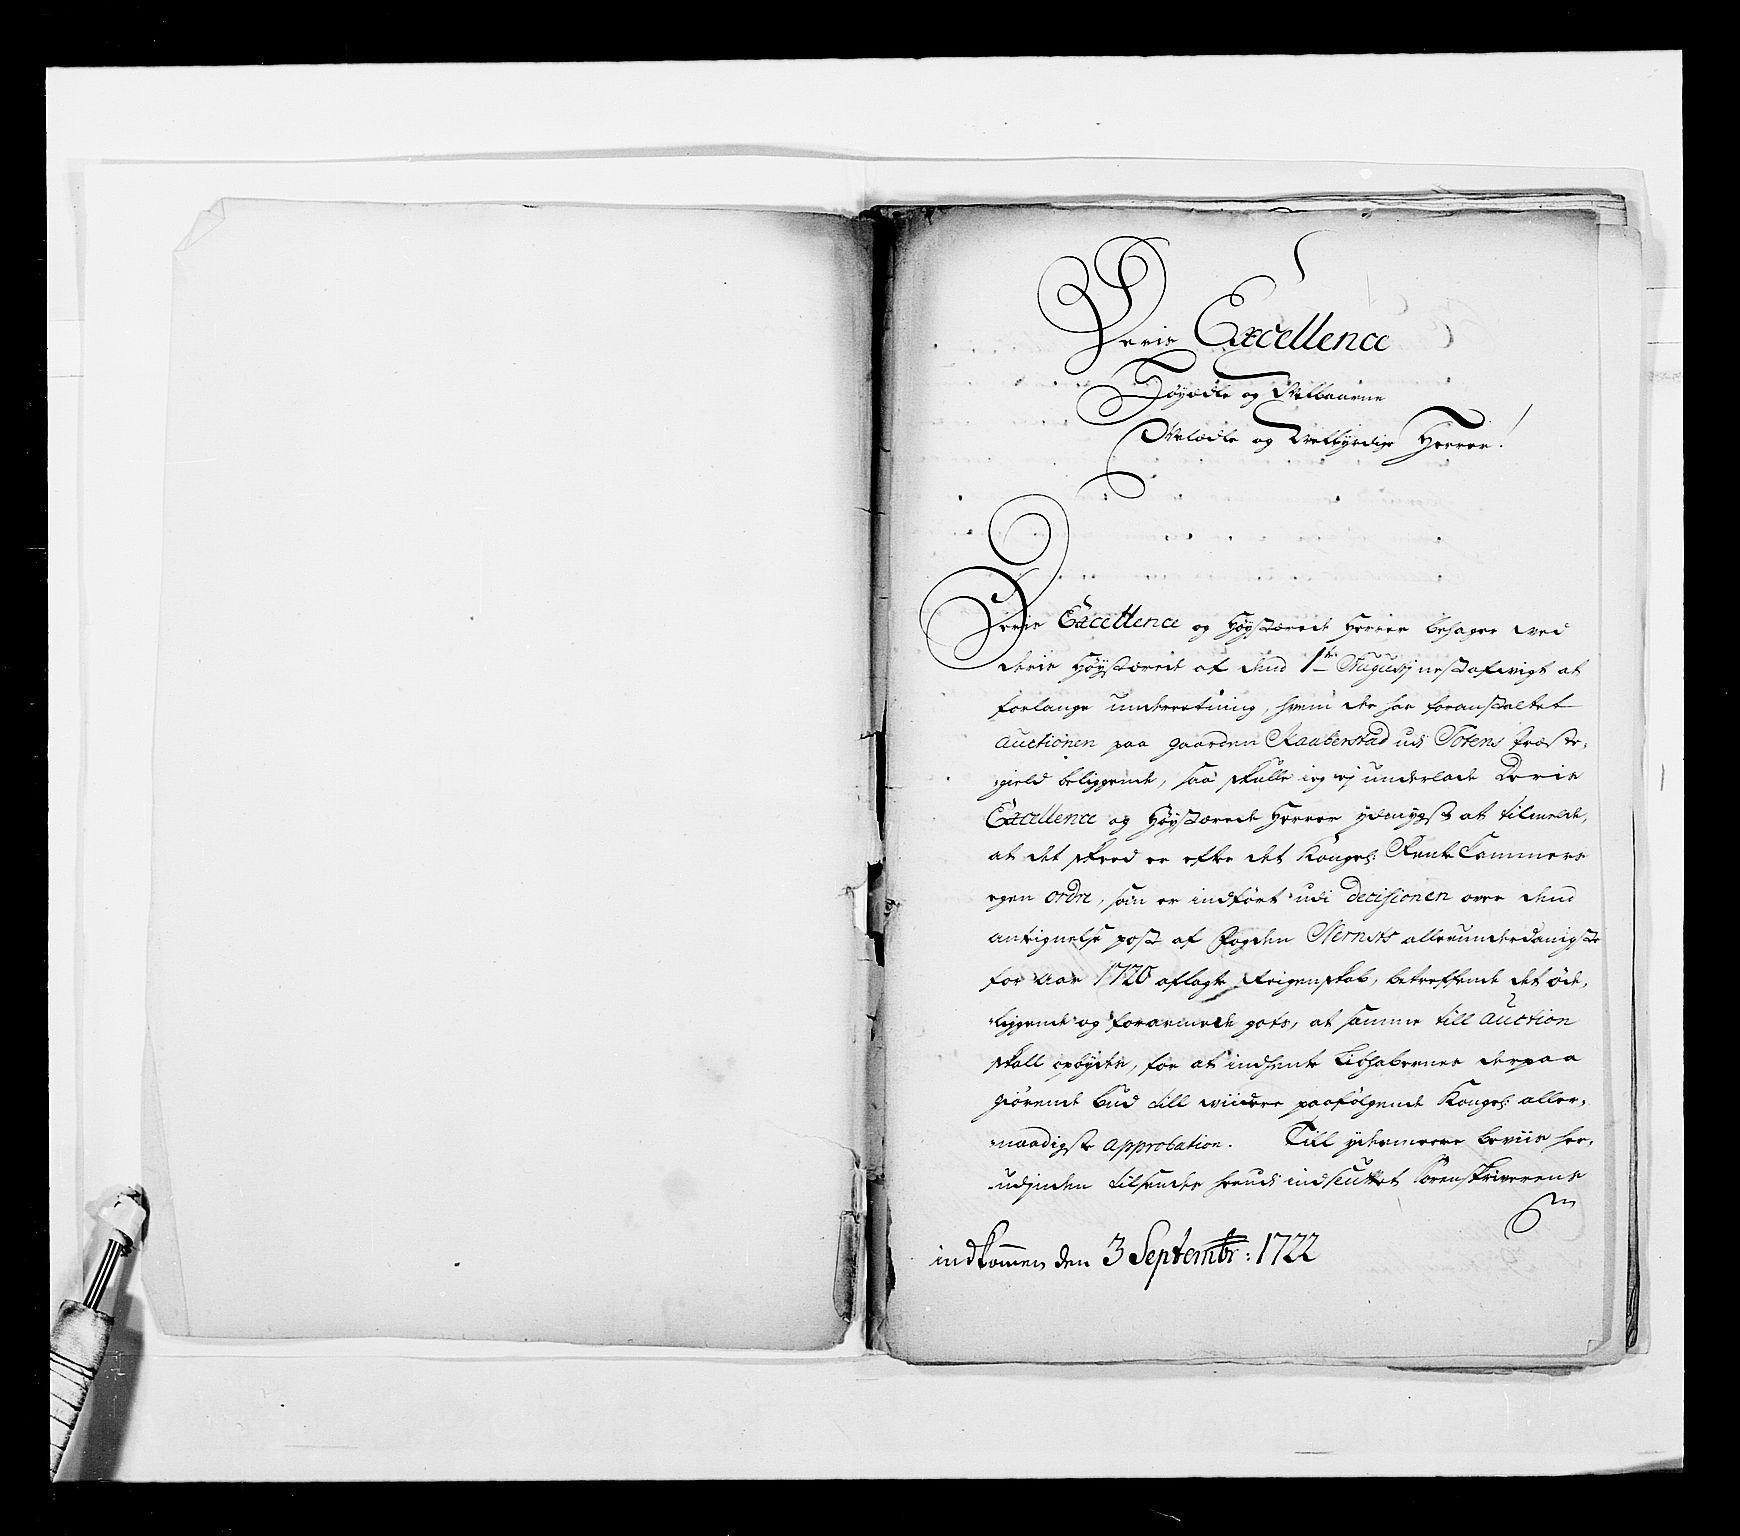 Deris Excellence
Høyædle og Velbaarne
Velædle og Velbyrdige Herrer!
Deris Excellence og Høystærede Herrer behager ved
deris Høystærede af dend 1te Augustj nestafvigt at
forlange underretning, hvem der har foranstaltet
auctionen paa gaarden Raaberstad udi Totens Præste-
gield beliggende, saa skulle ieg ej underlade Deris
Excellence og Høystærede Herrer ydmygst at tilmelde,
at det skeed er efter det Kongel: Rente Cammers
egen ordre, som er indført udi decisionen over dend
antegnelse post af Fogden Wernsts allerunderdanigste
for aar 1720 aflagte Reigenskab, betreffende det øde,
liggende og forarmede gots, at samme till auction
skall opbydes, for at indhente Liebhabernes derpaa
giørende bud till viidere paafølgende Kongel: aller-
naadigste approbation. Till ydermeere beviis her-
udjnden tilsendes herudi indsluttet Sorenskriverens
indkommen den 3 Septembr: 1722